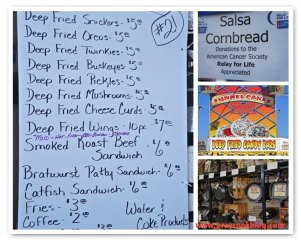 #21
Deep Fried Snickers - $5.00
Deep Fried Oreos - $5.00
Deep Fried Twinkies - $5.00
Deep Fried Buckeyes - $5.00
Deep Fried Pickles - $5.00
Deep Fried Mushrooms - $5.00
Deep Fried Cheese Curds - $5.00
Deep Fried Wings - 10pc. $7.00
Smoked Roast Beef
Sandwich $6.00
Bratwurst Patty Sandwich - $6.00
Catfish Sandwich - $6.00
Fries - $3.00
Coffee - $2.00
Water &
Coke Products
Salsa
Cornbread
Donations to the
American Cancer Society
Relay for Life
Appreciated
FUNNEL CAKES
DEEP FRIED CANDY BARS